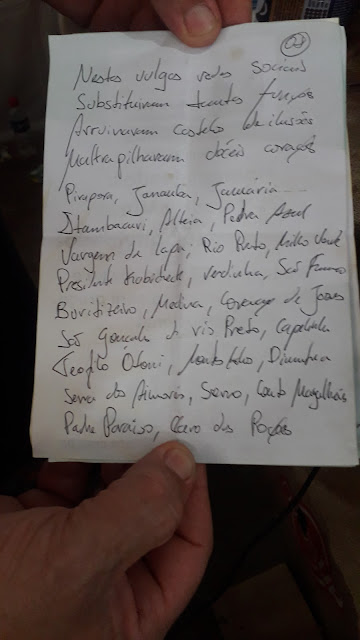 01
Nestes vulgos redes sociais
Substituiram tantas funções
Arruinaram castelo de ilusões
Maltrapilharam dóceis corações
Pirapora, Janauba, Januária...
Itambacuri, Pedra Azul
Vargem da Lapa, Rio Preto, Milho Verde
Presidente Kubitschek, Verdinha, São
Buritizeiro, Medina, de
São Gonçalo do rio Preto, Capelinha
Teófilo Otoni, Diamantina
Serra dos Aimorés, Serro, Couto Magalhães
Padre Paraíso, Claro dos Poções